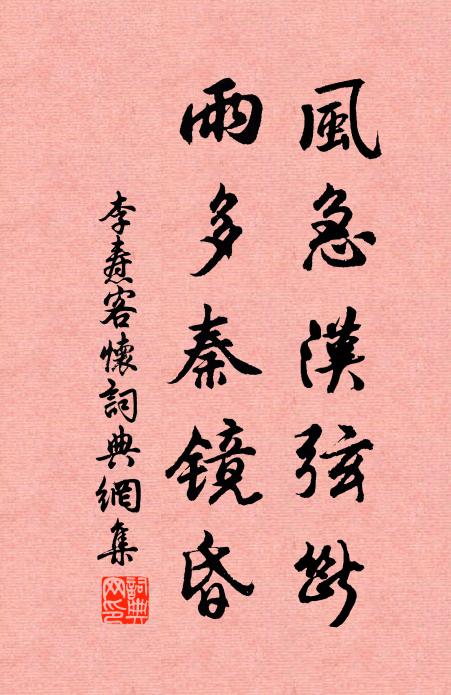 風急漢弦斷
雨多秦鏡昏
李壽客懷詞典網集
詞典網印